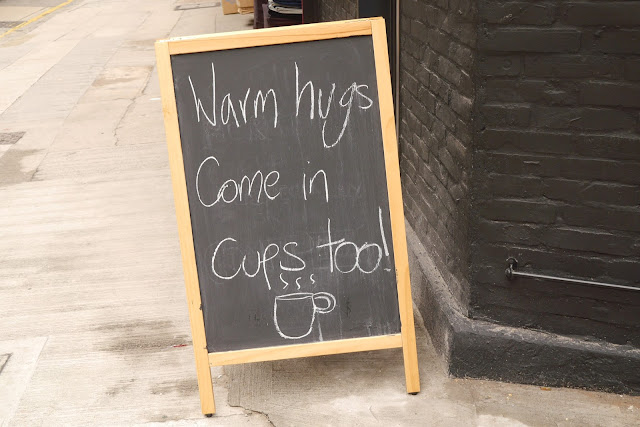 Warm hugs
Come in
cups too!